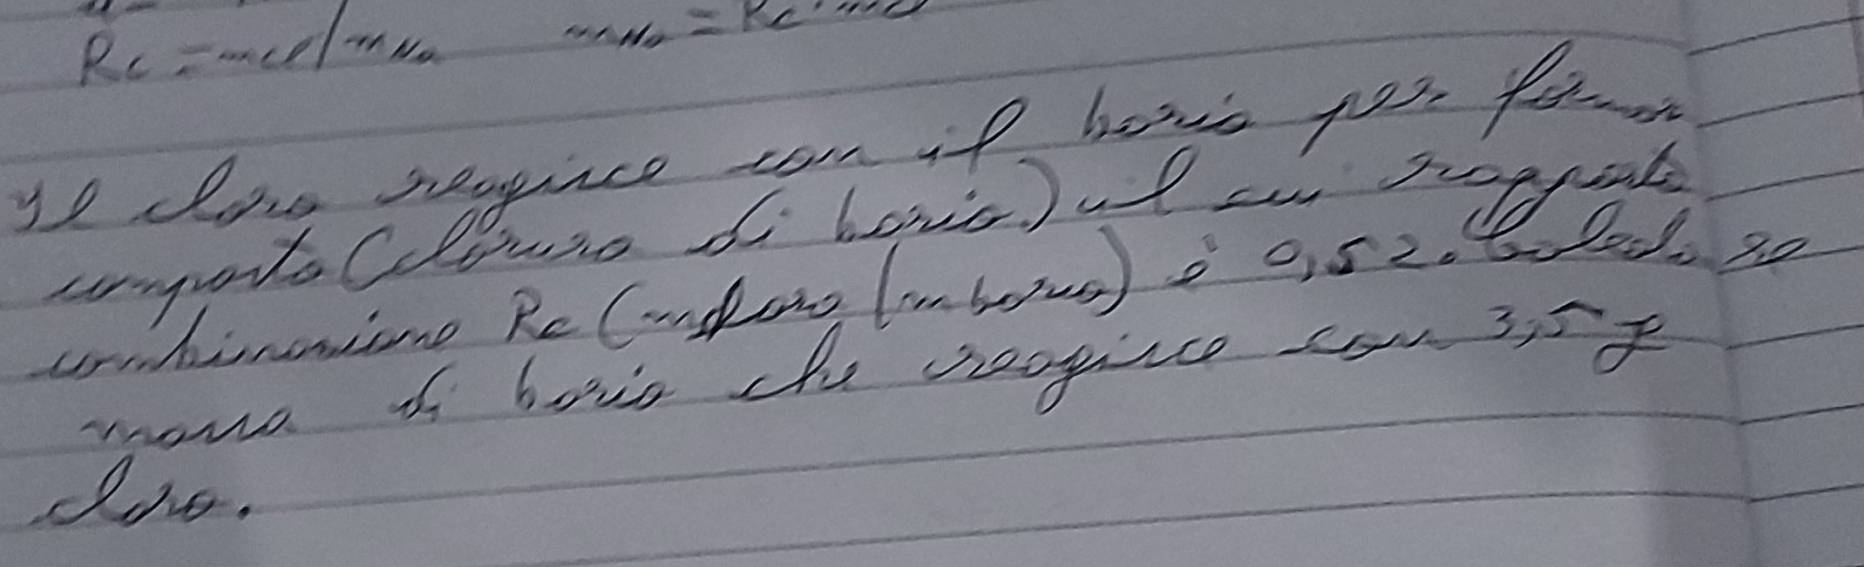 Rc = mcl / mNa mNa = Rc · mcl
Il cloro reagisce con il bario per formar
composto (cloruro di bario) il cui rapporto
combinazione Rc (mcloro / m bario) è 0,52. Calcola
massa di bario che reagisce con 3,5 g
cloro.